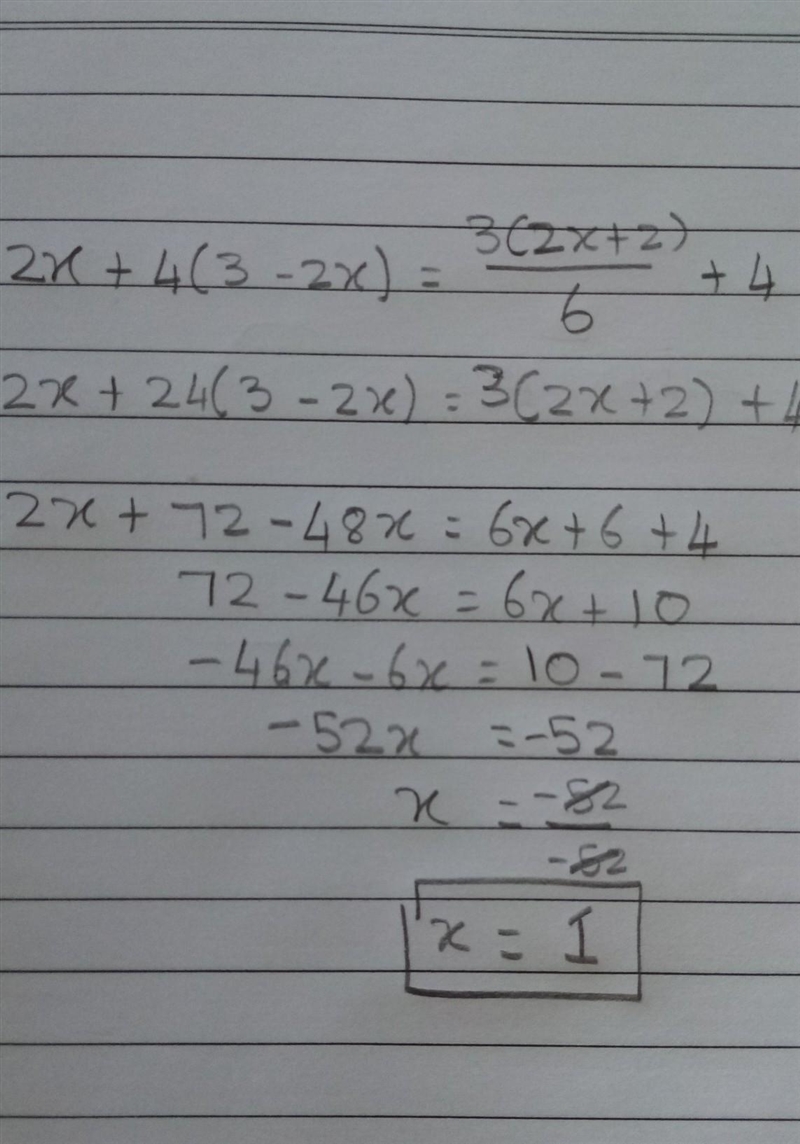 2x + 4(3 - 2x) = 3(2x+2)/6 + 4
2x + 24(3 - 2x) = 3(2x+2) + 4
2x + 72 - 48x = 6x + 6 + 4
72 - 46x = 6x + 10
-46x - 6x = 10 - 72
-52x = -52
x = -52/-52
x = 1